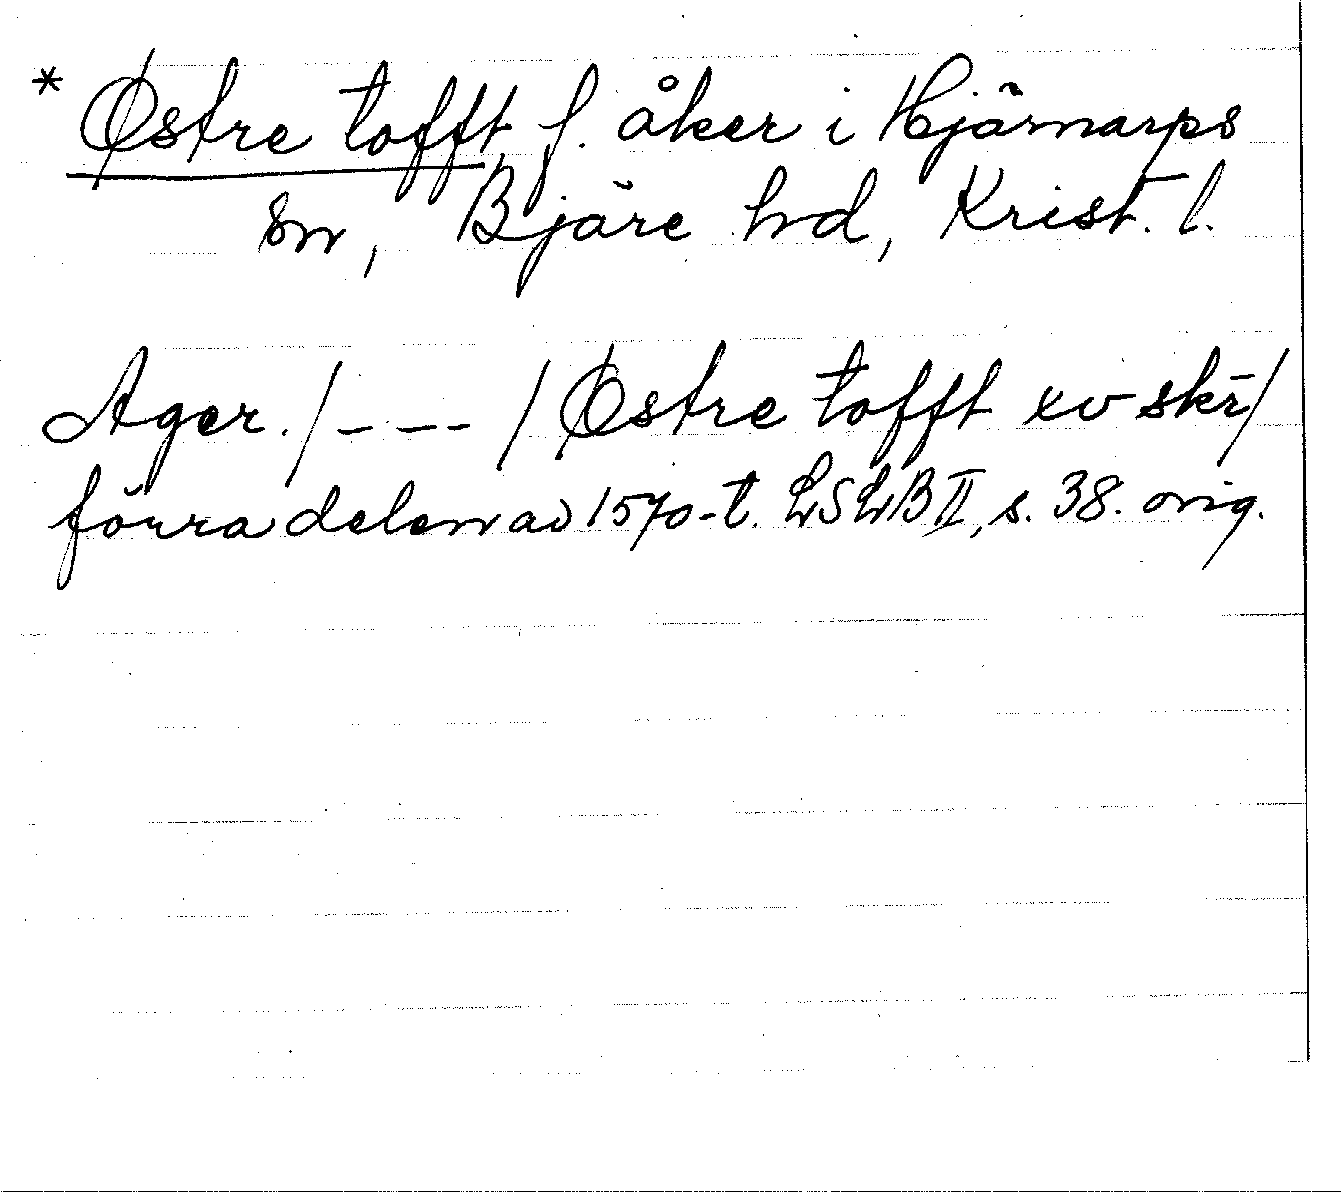 * Østre tofft, f. åker i Hjärnarps
sn, Bjäre hd, Krist. l.
Ager. / - - - / Østre tofft xv skr̄ /
förra delen av 1570-t. LSLB II, s. 38. orig.